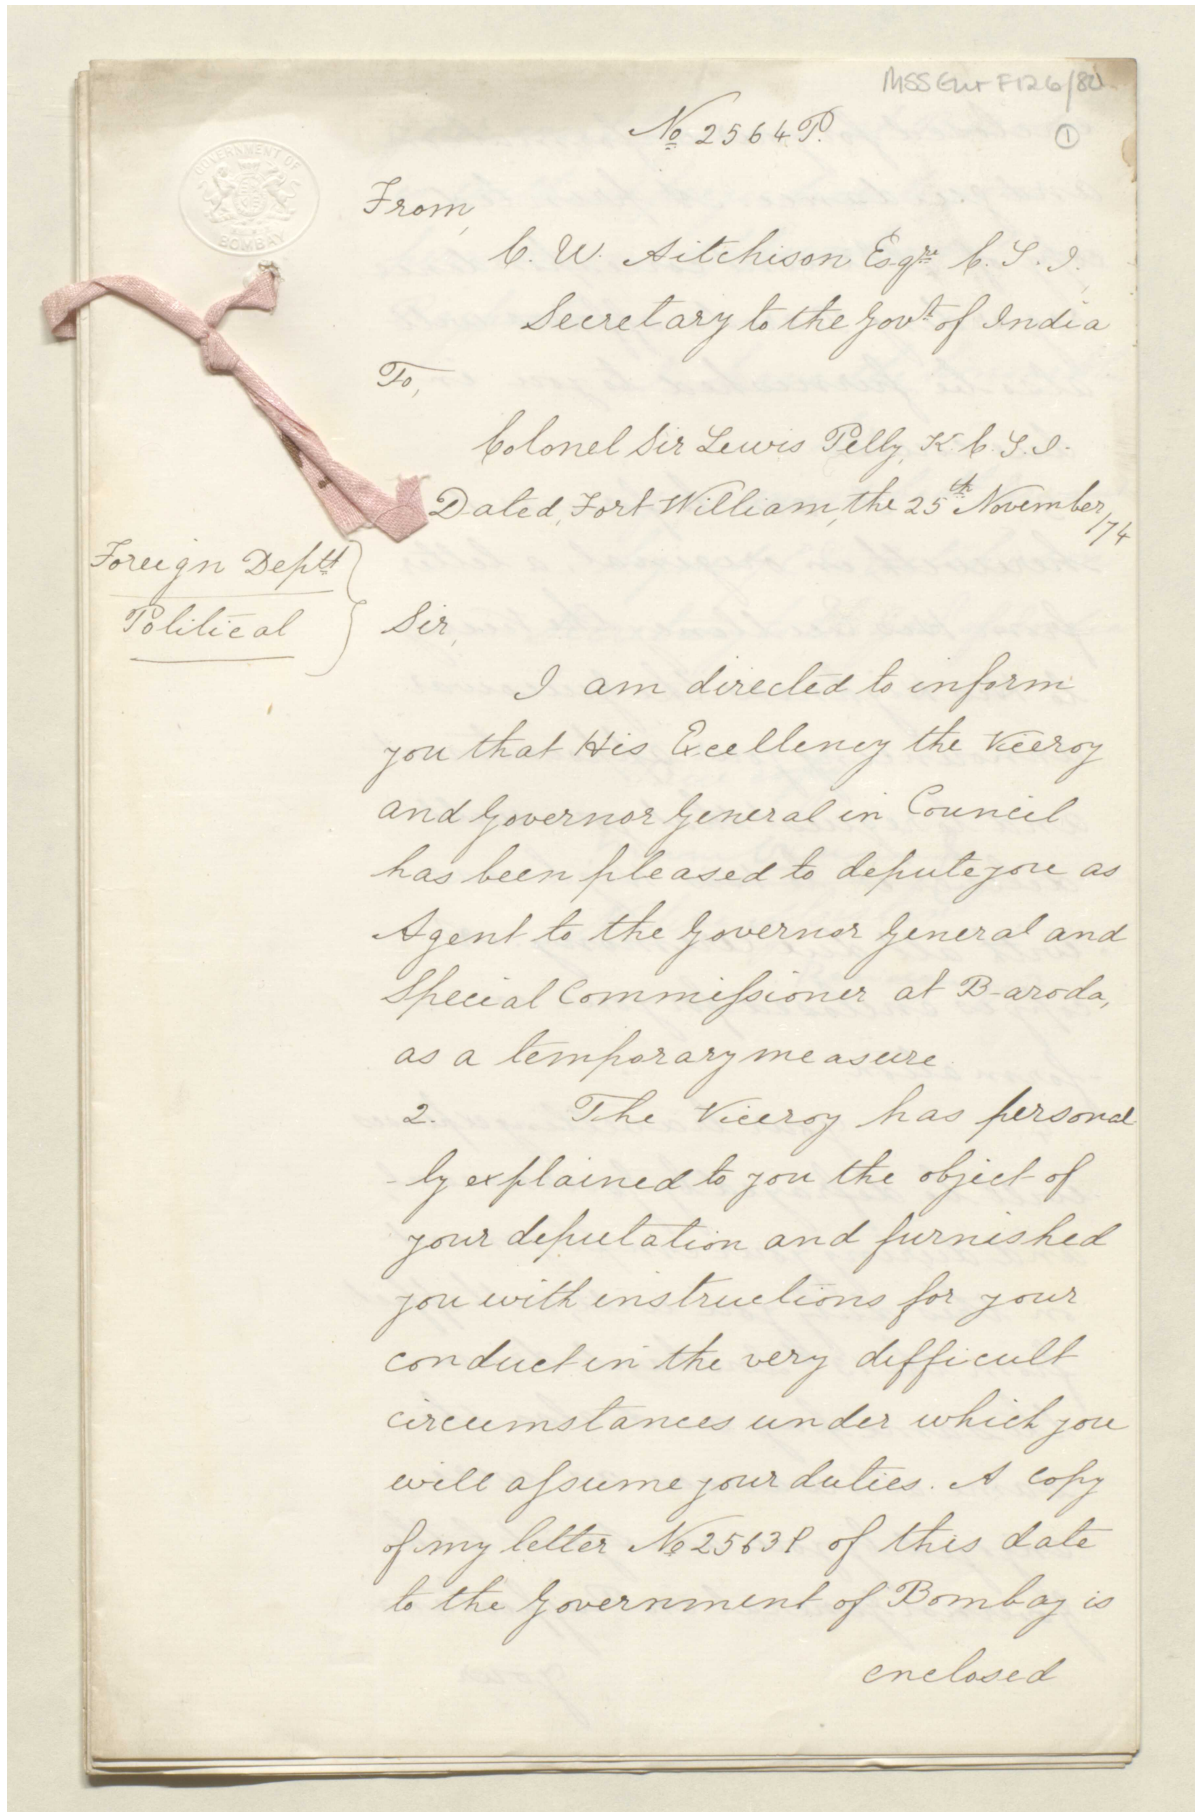 MSS Eur F126/80
1
No 2564 P.
GOVERNMENT OF
BOMBAY
From,
C. W. Aitchison Esqre C. S. I.,
Secretary to the Govt of India
To,
Colonel Sir Lewis Pelly, K. C. S. I.
Dated, Fort William, the 25th November /74
Foreign Deptt
Political
Sir,
I am directed to inform
you that His Excellency the Viceroy
and Governor General in Council
has been pleased to depute you as
Agent to the Governor General and
Special Commissioner at Baroda,
as a temporary measure.
2. The Viceroy has personal
-ly explained to you the object of
your deputation and furnished
you with instructions for your
conduct in the very difficult
circumstances under which you
will assume your duties. A copy
of my letter No 2563 P of this date
to the Government of Bombay is
enclosed